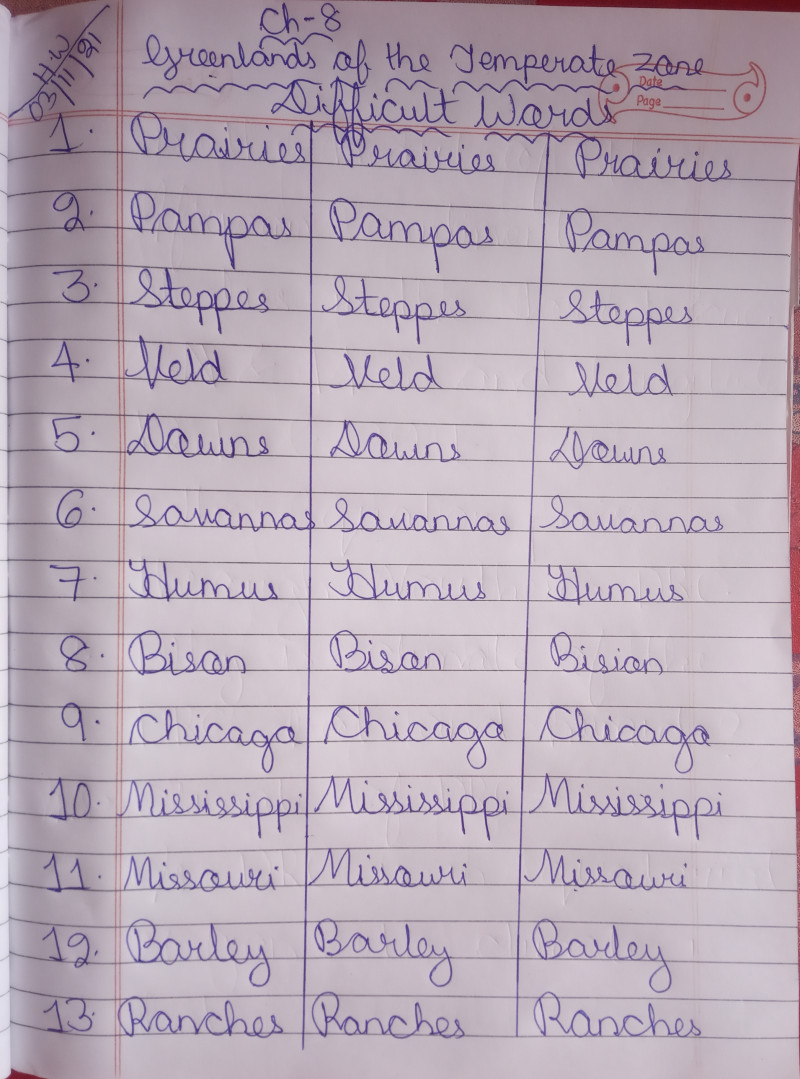 H.W
03/11/21
Ch-8
Greenlands of the Temperate Zone
Date
Page
Difficult Words
1. Prairies Prairies Prairies
2. Pampas Pampas Pampas
3. Steppes Steppes Steppes
4. Veld Veld Veld
5. Downs Downs Downs
6. Savannas Savannas Savannas
7. Humus Humus Humus
8. Bison Bison Bision
9. Chicago Chicago Chicago
10. Mississippi Mississippi Mississippi
11. Missouri Missouri Missouri
12. Barley Barley Barley
13. Ranches Ranches Ranches